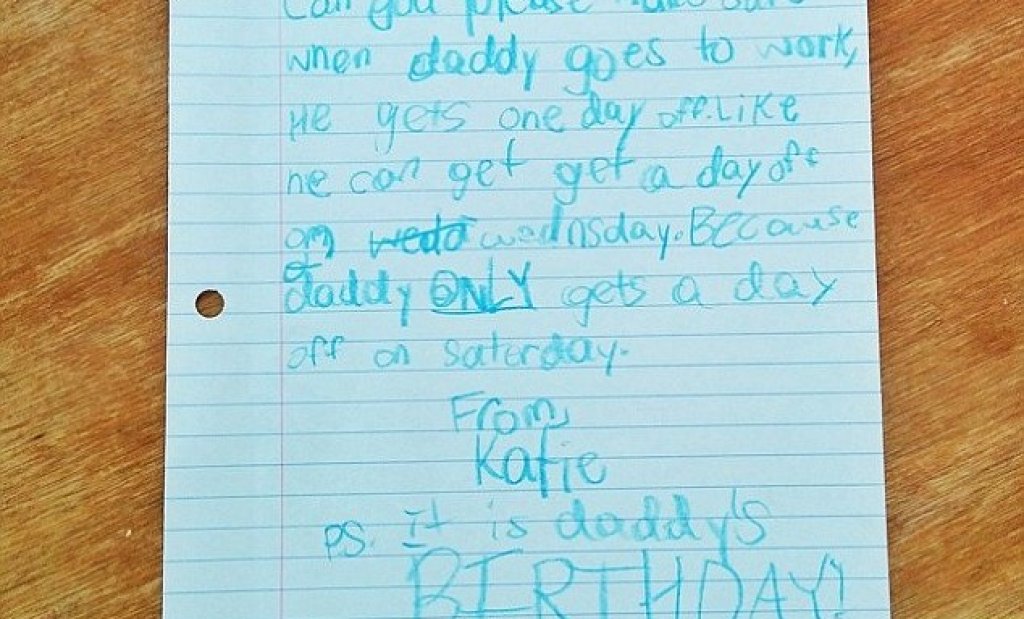 Can you please make sure
when daddy goes to work,
He gets one day off. Like
he can get get a day off
on wednsday. Because
daddy ONLY gets a day
off on saterday.
From,
Katie
PS. It is daddy's
BIRTHDAY!